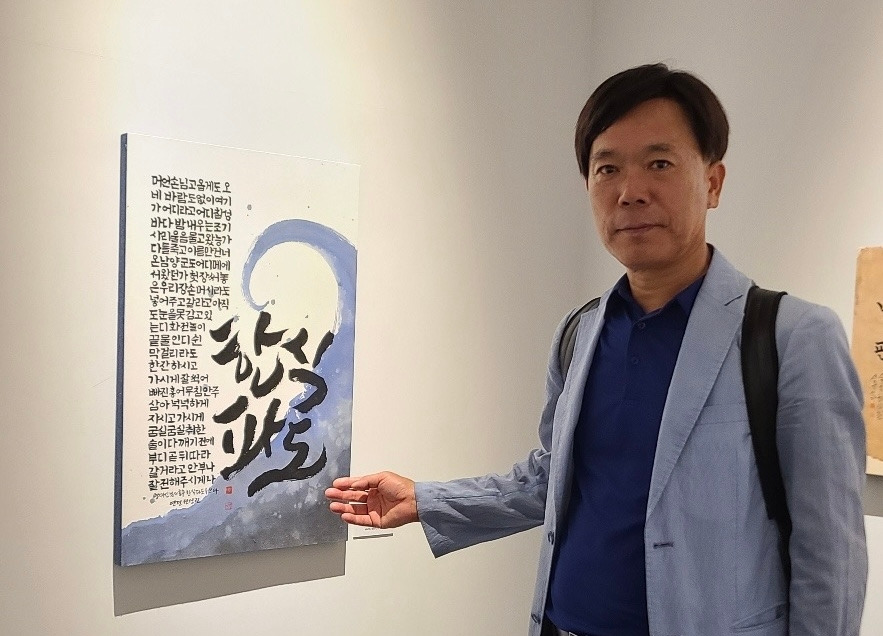 머언손님고옵게도 오
네 바람도없이여기
가어디라고어디참성
바다 밤새우는조기
사리울음물고왔능가
다들죽고이름만건너
온남양군도어디메에
서왔던가 헛장써놓
은우리장손머심라도
넣어주고갈라고아직
도눈을못감고있
는디화전놀이
끝물인디쉰
막걸리라도
한잔하시고
가시게잘썩어
빠진홍어무침안주
삼아넉넉하게
자시고가시게
굼실굼실취한
술이다깨기전에
부디곧뒤따라
갈거라고안부나
잘전해주시게나
한식
파도